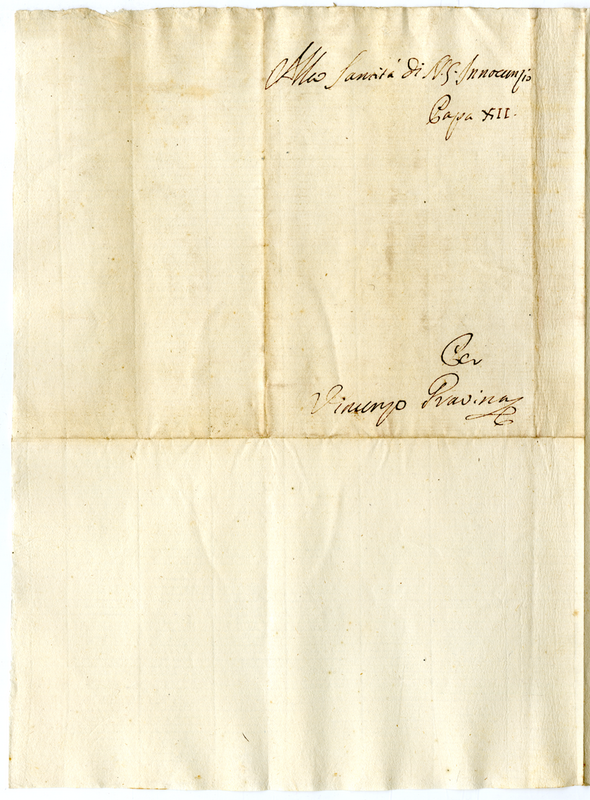 Alla Santità di N. S. Innocenzio
Papa XII.
Per
Vincenzo Pravina